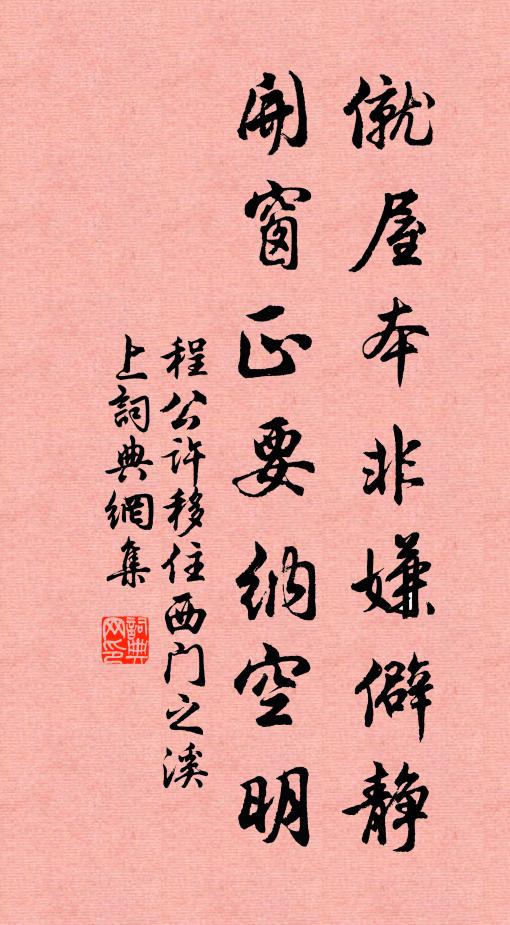 僦屋本非嫌僻静
開窗正要納空明
程公许移住西门之溪
上詞典網集
詞典网印